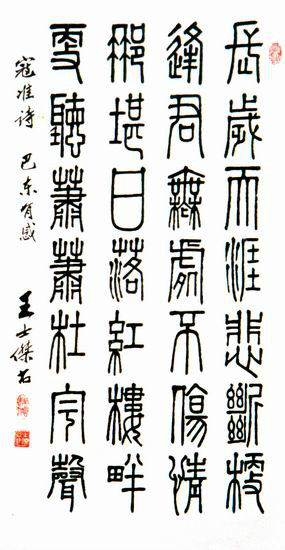 長歲天涯悲斷梗
逢君無處不傷情
那堪日落紅樓畔
更聽蕭蕭杜宇聲
寇准诗 巴东有感 王士傑书